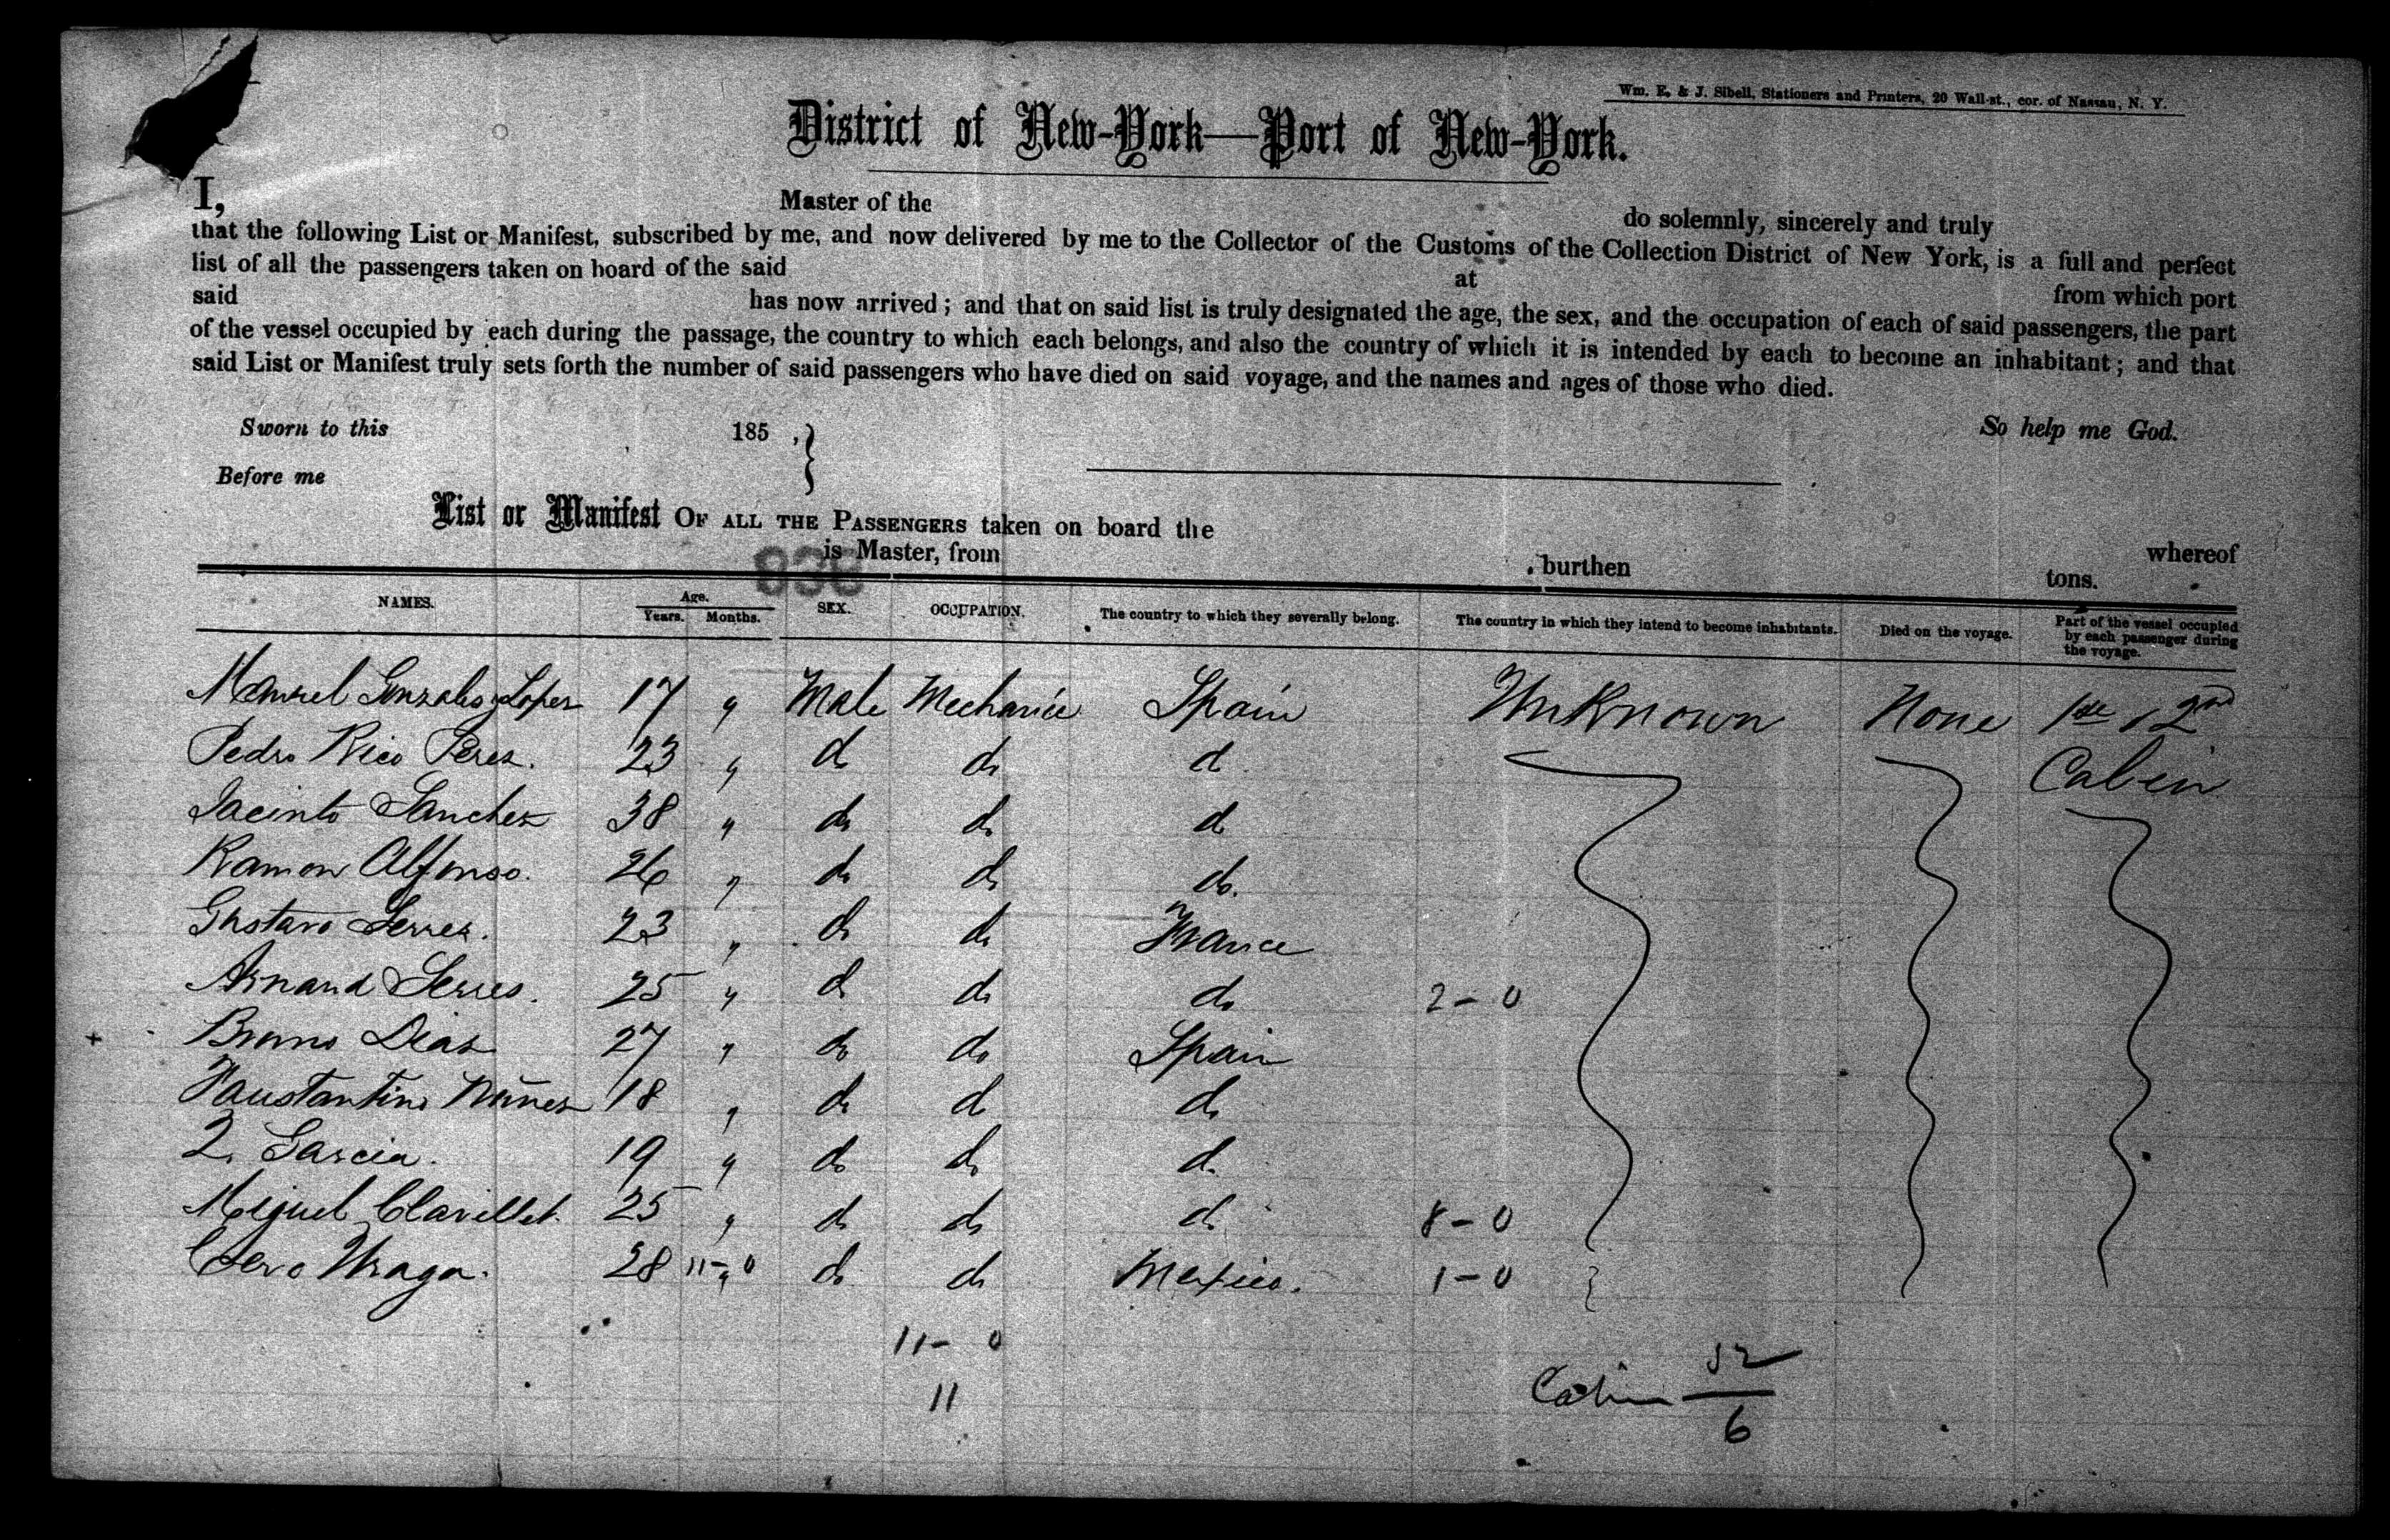 Wm. E. & J. Sibell, Stationers and Printers, 20 Wall-st., cor. of Nassau, N. Y.
District of New-York—Port of New-York.
I, Master of the do solemnly, sincerely and truly
that the following List or Manifest, subscribed by me, and now delivered by me to the Collector of the Customs of the Collection District of New York, is a full and perfect
list of all the passengers taken on board of the said at from which port
said has now arrived; and that on said list is truly designated the age, the sex, and the occupation of each of said passengers, the part
of the vessel occupied by each during the passage, the country to which each belongs, and also the country of which it is intended by each to become an inhabitant; and that
said List or Manifest truly sets forth the number of said passengers who have died on said voyage, and the names and ages of those who died.
Sworn to this 185 , So help me God.
Before me
List or Manifest OF ALL THE PASSENGERS taken on board the whereof
is Master, from , burthen tons.
NAMES. Age. Years. Months. SEX. OCCUPATION. The country to which they severally belong. The country in which they intend to become inhabitants. Died on the voyage. Part of the vessel occupied by each passenger during the voyage.
Manuel Gonzales y Lopez 17 " Male Mechanic Spain Unknown None 1st & 2nd
Pedro Rico Perez. 23 " do do do Cabin
Jacinto Sanchez 38 " do do do
Ramon Alfonso. 26 " do do do.
Gustavo Serres. 23 " do do France
Arnand Serres. 25 " do do do 2-0
+ Bruno Diaz 27 " do do Spain
Faustantino Nuñez 18 " do do do
Garcia. 19 " do do do
Miguel Clavillet. 25 " do do do 8-0
Uraga. 28 11-0 " do do Mexico. 1-0
11- 0
11
Cabin 52
6